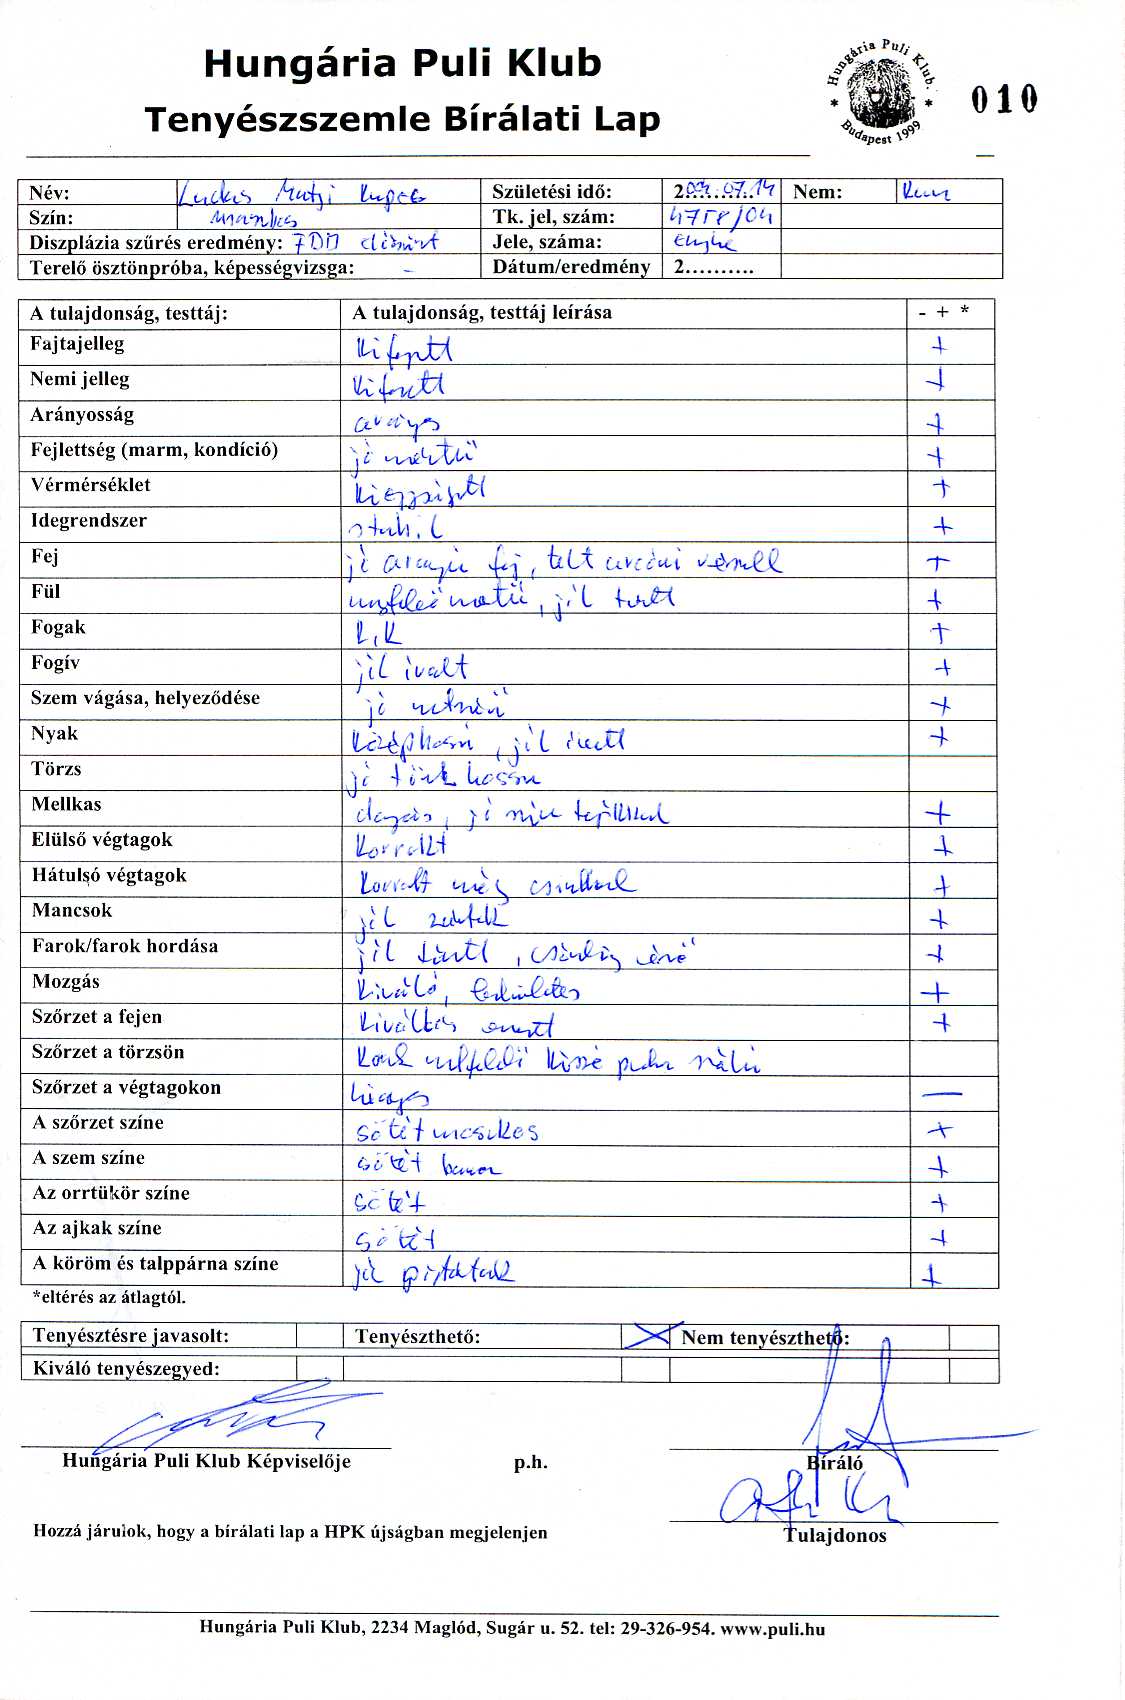 Hungária Puli Klub
Tenyészszemle Bírálati Lap
Hungária Puli Klub.
* *
Budapest 1999
010
Név: Ludas Matyi Születési idő: 2004.07.14 Nem: Kan
Szín: Tk. jel, szám: 4758/04
Diszplázia szűrés eredmény: Jele, száma: enyhe
Terelő ösztönpróba, képességvizsga: - Dátum/eredmény 2..........
A tulajdonság, testtáj: A tulajdonság, testtáj leírása - + *
Fajtajelleg Kifejezett +
Nemi jelleg Kifejezett +
Arányosság arányos +
Fejlettség (marm, kondíció) jó méretű +
Vérmérséklet Kiegyensúlyozott +
Idegrendszer stabil +
Fej jó arányú fej, telt arcorri résszel +
Fül megfelelő méretű, jól tűzött +
Fogak K, K +
Fogív jól ívelt +
Szem vágása, helyeződése jó metszésű +
Nyak Középhosszú, jól ívelt +
Törzs jó törzs hosszú
Mellkas dongás, jó +
Elülső végtagok Korrekt +
Hátulsó végtagok Korrekt +
Mancsok jól zártak +
Farok/farok hordása jól tűzött, csánkig érő +
Mozgás Kiváló, lendületes +
Szőrzet a fejen +
Szőrzet a törzsön Kissé puha szálú
Szőrzet a végtagokon hiányos —
A szőrzet színe sötét mcsikos +
A szem színe sötét barna +
Az orrtükör színe sötét +
Az ajkak színe sötét +
A köröm és talppárna színe jól pigmentált +
*eltérés az átlagtól.
Tenyésztésre javasolt: Tenyészthető: X Nem tenyészthető:
Kiváló tenyészegyed:
Hungária Puli Klub Képviselője p.h. Bíráló
Hozzá járulok, hogy a bírálati lap a HPK újságban megjelenjen Tulajdonos
Hungária Puli Klub, 2234 Maglód, Sugár u. 52. tel: 29-326-954. www.puli.hu